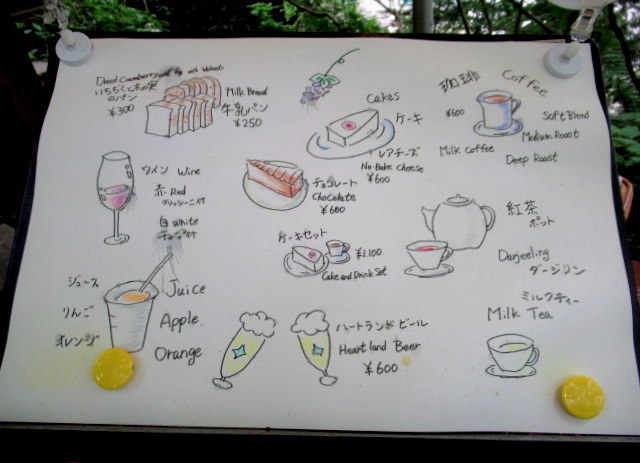 Dried Cranberry and fig with Walnuts
いちじくと木の実
のパン
¥300
Milk Bread
牛乳パン
¥250
Cakes
ケーキ
レアチーズ
No-Bake Cheese
¥600
珈琲 Coffee
¥600
Soft Blend
Medium Roast
Milk Coffee
Deep Roast
ワイン Wine
赤 Red
白 White
チョコレート
Chocolate
¥600
ケーキセット
¥1.100
Cake and Drink Set
紅茶
ポット
Darjeeling
ダージリン
ミルクティー
Milk Tea
ジュース Juice
りんご Apple.
オレンジ Orange
ハートランドビール
Heartland Beer
¥600